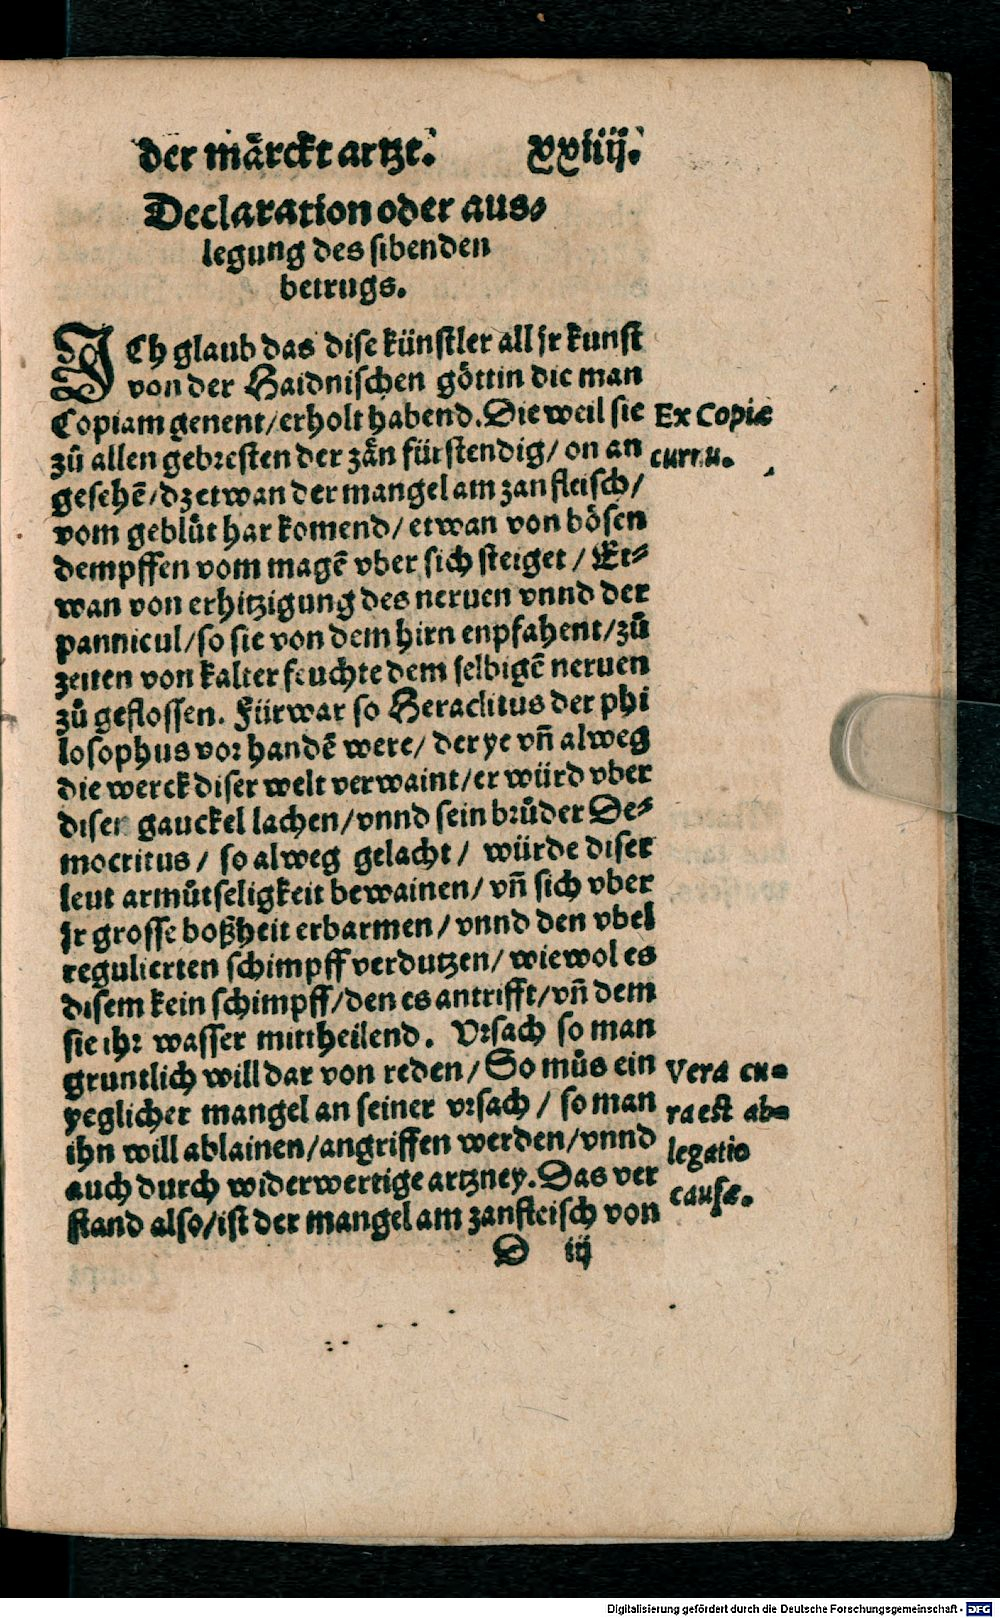 der märckt artzt. xxiiij.
Declaration oder aus⸗
legung des sibenden
betrugs.
ICh glaub das dise künstler all jr kunst
von der Haidnischen göttin die man
Copiam genent/ erholt habend. Die weil sie
zů allen gebresten der zän fürstendig/ on an
gesehẽ/ dz etwan der mangel am zanfleisch/
vom geblůt har komend/ etwan von bösen
dempffen vom magẽ vber sich steiget/ Et⸗
wan von erhitzigung des neruen vnnd der
pannicul/ so sie von dem hirn enpfahent/ zů
zeiten von kalter feuchte dem selbigẽ neruen
zů geflossen. Fürwar so Heraclitus der phi
losophus vor handẽ were/ der ye vñ alweg
die werck diser welt verwaint/ er würd vber
disen gauckel lachen/ vnnd sein brůder De⸗
mocritus/ so alweg gelacht/ würde diser
leut armůtseligkeit bewainen/ vñ sich vber
jr grosse boßheit erbarmen/ vnnd den vbel
regulierten schimpff verdutzen/ wiewol es
disem kein schimpff/ den es antrifft/ vñ dem
sie ihr wasser mittheilend. Vrsach so man
gruntlich will dar von reden/ So můs ein
yeglicher mangel an seiner vrsach/ so man
ihn will ablainen/ angriffen werden/ vnnd
auch durch widerwertige artzney. Das ver
stand also/ ist der mangel am zanfleisch von
D iij
Ex Copiæ
curru.
Vera cu⸗
ra est ab⸗
legatio
causæ.
Digitalisierung gefördert durch die Deutsche Forschungsgemeinschaft - DFG